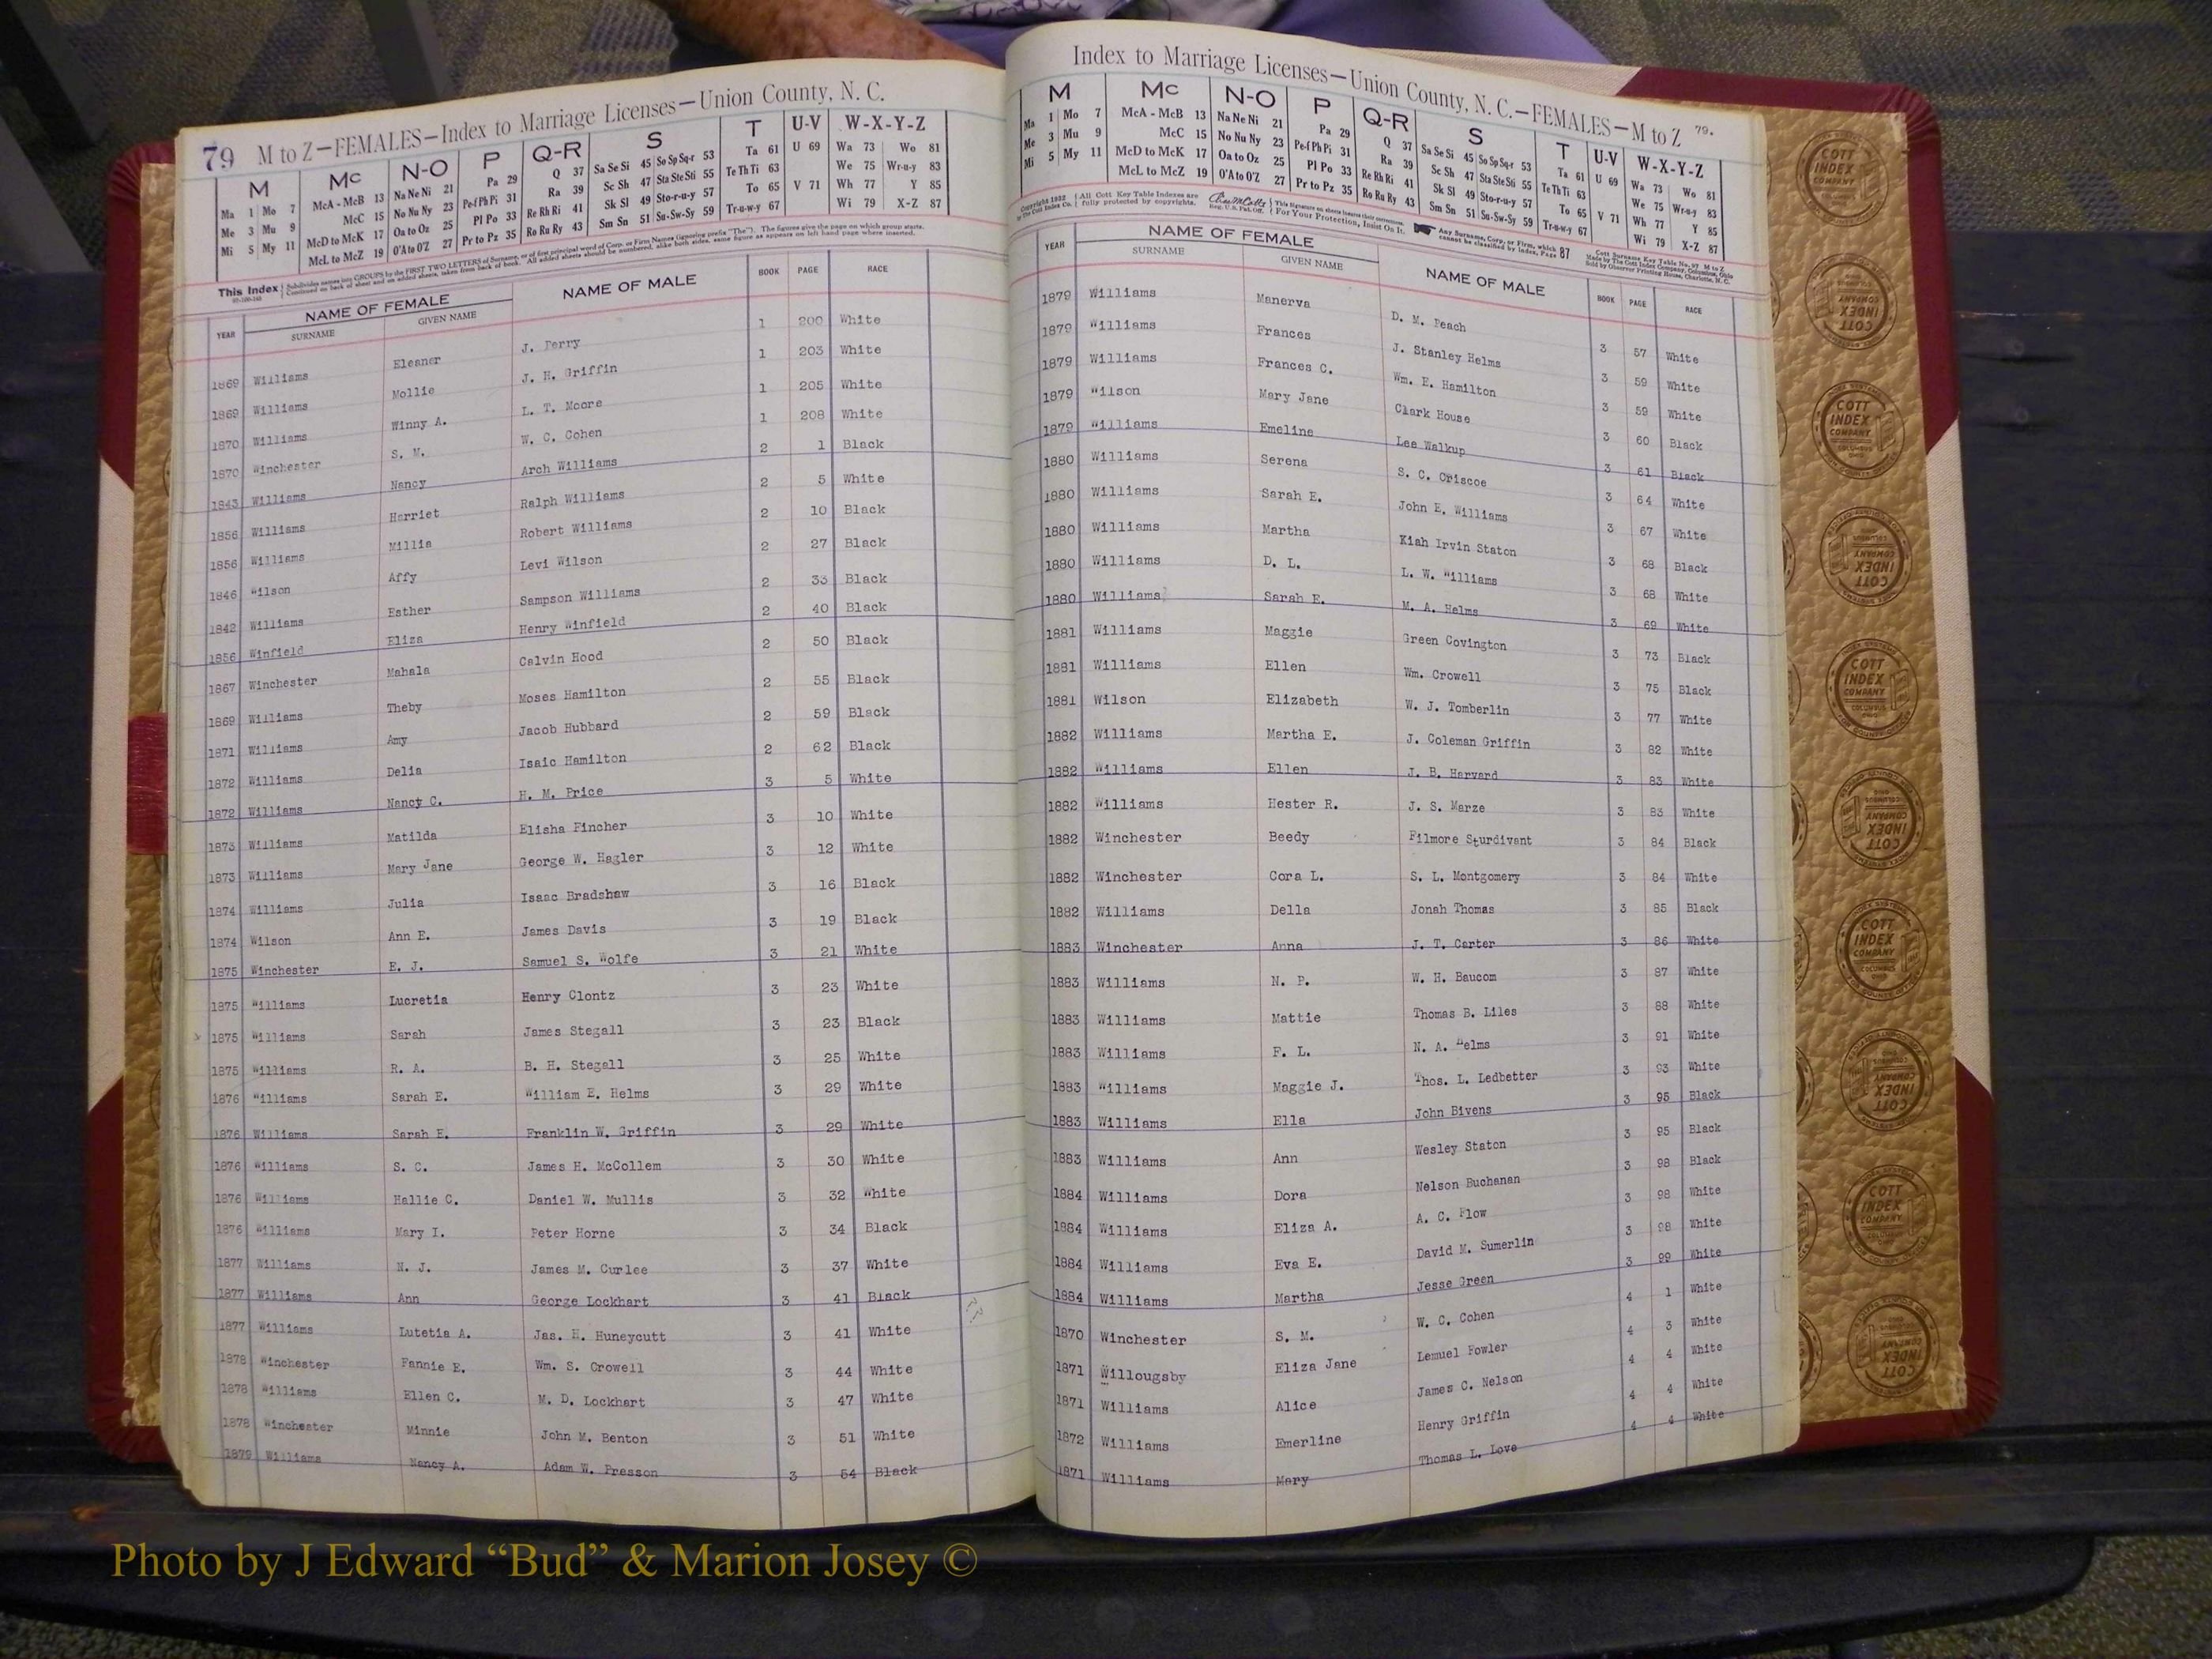 79 M to Z—FEMALES—Index to Marriage Licenses—Union County, N. C.
M Mc N-O P Q-R S T U-V W-X-Y-Z
Ma 1 Mo 7 McA - McB 13 Na Ne Ni 21 Pa 29 Q 37 Sa Se Si 45 So Sp Sq-r 53 Ta 61 U 69 Wa 73 Wo 81
Me 3 Mu 9 McC 15 No Nu Ny 23 Pe-f Ph Pi 31 Ra 39 Sc Sh 47 Sta Ste Sti 55 Te Th Ti 63 We 75 Wr-u-y 83
Mi 5 My 11 McD to McK 17 Oa to Oz 25 Pl Po 33 Re Rh Ri 41 Sk Sl 49 Sto-r-u-y 57 To 65 V 71 Wh 77 Y 85
McL to McZ 19 O'A to O'Z 27 Pr to Pz 35 Ro Ru Ry 43 Sm Sn 51 Su-Sw-Sy 59 Tr-u-w-y 67 Wi 79 X-Z 87
This Index Subdivides names into GROUPS by the FIRST TWO LETTERS of Surname, or of first principal word of Corp. or Firm Names (ignoring prefix "The"). The figures give the page on which group starts.
Continued on back of sheet and on added sheets, taken from back of book. All added sheets should be numbered, alike both sides, same figure as appears on left hand page where inserted.
YEAR NAME OF FEMALE NAME OF MALE BOOK PAGE RACE
SURNAME GIVEN NAME
1869 Williams Eleaner J. Perry 1 200 White
1869 Williams Mollie J. H. Griffin 1 203 White
1870 Williams Winny A. L. T. Moore 1 205 White
1870 Winchester S. M. W. C. Cohen 1 208 White
1843 Williams Nancy Arch Williams 2 1 Black
1856 Williams Harriet Ralph Williams 2 5 White
1856 Williams Millia Robert Williams 2 10 Black
1846 Wilson Affy Levi Wilson 2 27 Black
1842 Williams Esther Sampson Williams 2 33 Black
1856 Winfield Eliza Henry Winfield 2 40 Black
1867 Winchester Mahala Calvin Hood 2 50 Black
1869 Williams Theby Moses Hamilton 2 55 Black
1871 Williams Amy Jacob Hubbard 2 59 Black
1872 Williams Delia Isaic Hamilton 2 62 Black
1872 Williams Nancy C. H. M. Price 3 5 White
1873 Williams Matilda Elisha Fincher 3 10 White
1873 Williams Mary Jane George W. Hagler 3 12 White
1874 Williams Julia Isaac Bradshaw 3 16 Black
1874 Wilson Ann E. James Davis 3 19 Black
1875 Winchester E. J. Samuel S. Wolfe 3 21 White
1875 Williams Lucretia Henry Clontz 3 23 White
1875 Williams Sarah James Stegall 3 23 Black
1875 Williams R. A. B. H. Stegall 3 25 White
1876 Williams Sarah E. William E. Helms 3 29 White
1876 Williams Sarah E. Franklin W. Griffin 3 29 White
1876 Williams S. C. James H. McCollem 3 30 White
1876 Williams Hallie C. Daniel W. Mullis 3 32 White
1876 Williams Mary I. Peter Horne 3 34 Black
1877 Williams N. J. James M. Curlee 3 37 White
1877 Williams Ann George Lockhart 3 41 Black
1877 Williams Lutetia A. Jas. H. Huneycutt 3 41 White
1878 Winchester Fannie E. Wm. S. Crowell 3 44 White
1878 Williams Ellen C. M. D. Lockhart 3 47 White
1878 Winchester Minnie John M. Benton 3 51 White
1879 Williams Nancy A. Adam W. Presson 3 54 Black
Index to Marriage Licenses—Union County, N. C.—FEMALES—M to Z 79.
M Mc N-O P Q-R S T U-V W-X-Y-Z
Ma 1 Mo 7 McA - McB 13 Na Ne Ni 21 Pa 29 Q 37 Sa Se Si 45 So Sp Sq-r 53 Ta 61 U 69 Wa 73 Wo 81
Me 3 Mu 9 McC 15 No Nu Ny 23 Pe-f Ph Pi 31 Ra 39 Sc Sh 47 Sta Ste Sti 55 Te Th Ti 63 We 75 Wr-u-y 83
Mi 5 My 11 McD to McK 17 Oa to Oz 25 Pl Po 33 Re Rh Ri 41 Sk Sl 49 Sto-r-u-y 57 To 65 V 71 Wh 77 Y 85
McL to McZ 19 O'A to O'Z 27 Pr to Pz 35 Ro Ru Ry 43 Sm Sn 51 Su-Sw-Sy 59 Tr-u-w-y 67 Wi 79 X-Z 87
All Cott Key Table Indexes are fully protected by copyrights. For Your Protection, Insist On It. Any Surname, Corp. or Firm, which cannot be classified by Index, Page 87
YEAR NAME OF FEMALE NAME OF MALE BOOK PAGE RACE
SURNAME GIVEN NAME
1879 Williams Manerva D. M. Peach 3 57 White
1879 Williams Frances J. Stanley Helms 3 59 White
1879 Williams Frances C. Wm. E. Hamilton 3 59 White
1879 Wilson Mary Jane Clark House 3 60 Black
1879 Williams Emeline Lee Walkup 3 61 Black
1880 Williams Serena S. C. Criscoe 3 64 White
1880 Williams Sarah E. John E. Williams 3 67 White
1880 Williams Martha Kiah Irvin Staton 3 68 Black
1880 Williams D. L. L. W. Williams 3 68 White
1880 Williams Sarah E. M. A. Helms 3 69 White
1881 Williams Maggie Green Covington 3 73 Black
1881 Williams Ellen Wm. Crowell 3 75 Black
1881 Wilson Elizabeth W. J. Tomberlin 3 77 White
1882 Williams Martha E. J. Coleman Griffin 3 82 White
1882 Williams Ellen J. B. Harvard 3 83 White
1882 Williams Hester R. J. S. Marze 3 83 White
1882 Winchester Beedy Filmore Sturdivant 3 84 Black
1882 Winchester Cora L. S. L. Montgomery 3 84 White
1882 Williams Della Jonah Thomas 3 85 Black
1883 Winchester Anna J. T. Carter 3 86 White
1883 Williams N. P. W. H. Baucom 3 87 White
1883 Williams Mattie Thomas B. Liles 3 88 White
1883 Williams F. L. N. A. Helms 3 91 White
1883 Williams Maggie J. Thos. L. Ledbetter 3 93 White
1883 Williams Ella John Bivens 3 95 Black
1883 Williams Ann Wesley Staton 3 95 Black
1884 Williams Dora Nelson Buchanan 3 98 Black
1884 Williams Eliza A. A. C. Flow 3 98 White
1884 Williams Eva E. David M. Sumerlin 3 98 White
1884 Williams Martha Jesse Green 3 99 White
1870 Winchester S. M. W. C. Cohen 4 1 White
1871 Willougsby Eliza Jane Lemuel Fowler 4 3 White
1871 Williams Alice James C. Nelson 4 4 White
1872 Williams Emerline Henry Griffin 4 4 White
1871 Williams Mary Thomas L. Love 4 4 White
COTT INDEX COMPANY COLUMBUS OHIO
Photo by J Edward “Bud” & Marion Josey ©